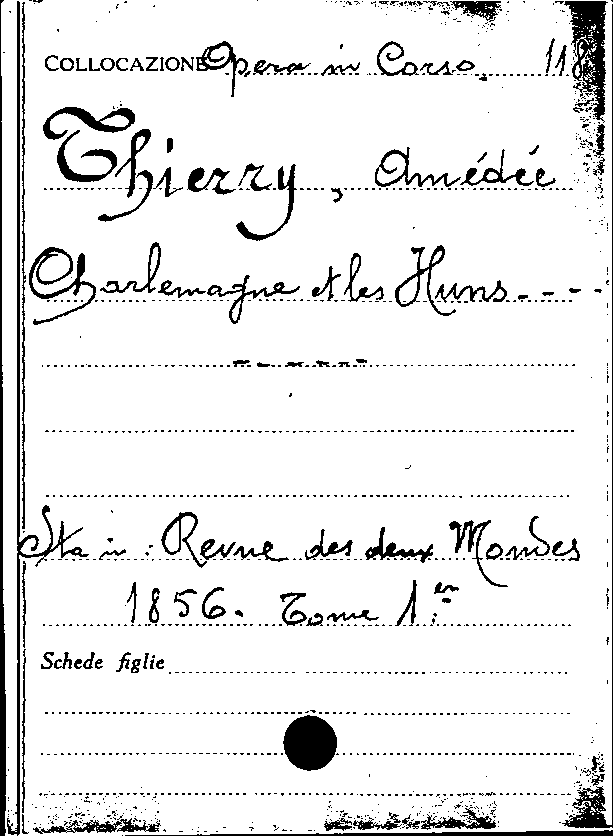 COLLOCAZIONE Opera in Corso. 118
Thierry, Amédée
Charlemagne et les Huns - - - -
- - - - - -
Sta in : Revue des deux Mondes
1856. Tome 1.er
Schede figlie